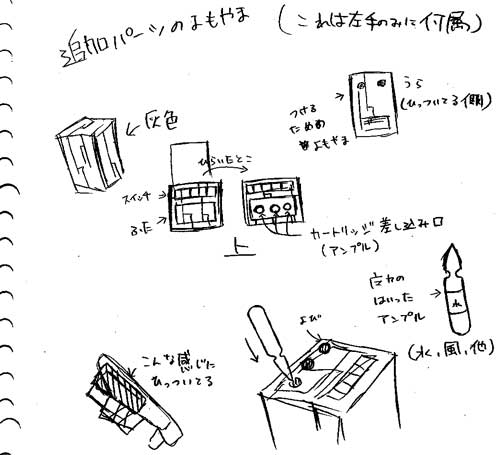 追加パーツのまもやま (これは左手のみに付属)
灰色
うら
(ひっついてる側)
つける
ための
ひらいたとこ
スイッチ
ふた
上
カートリッジ差し込み口
(アンプル)
魔力の
はいった
アンプル
水
(水、風、他)
よび
こんな感じに
ひっついてる